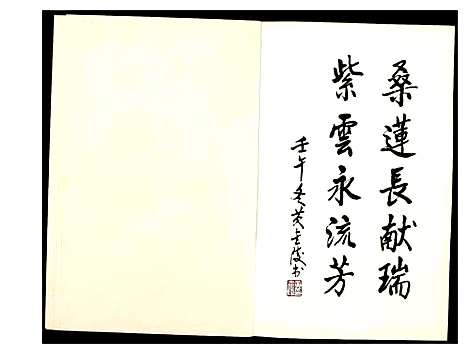 桑蓮長献瑞
紫雲永流芳
壬午冬黃
書